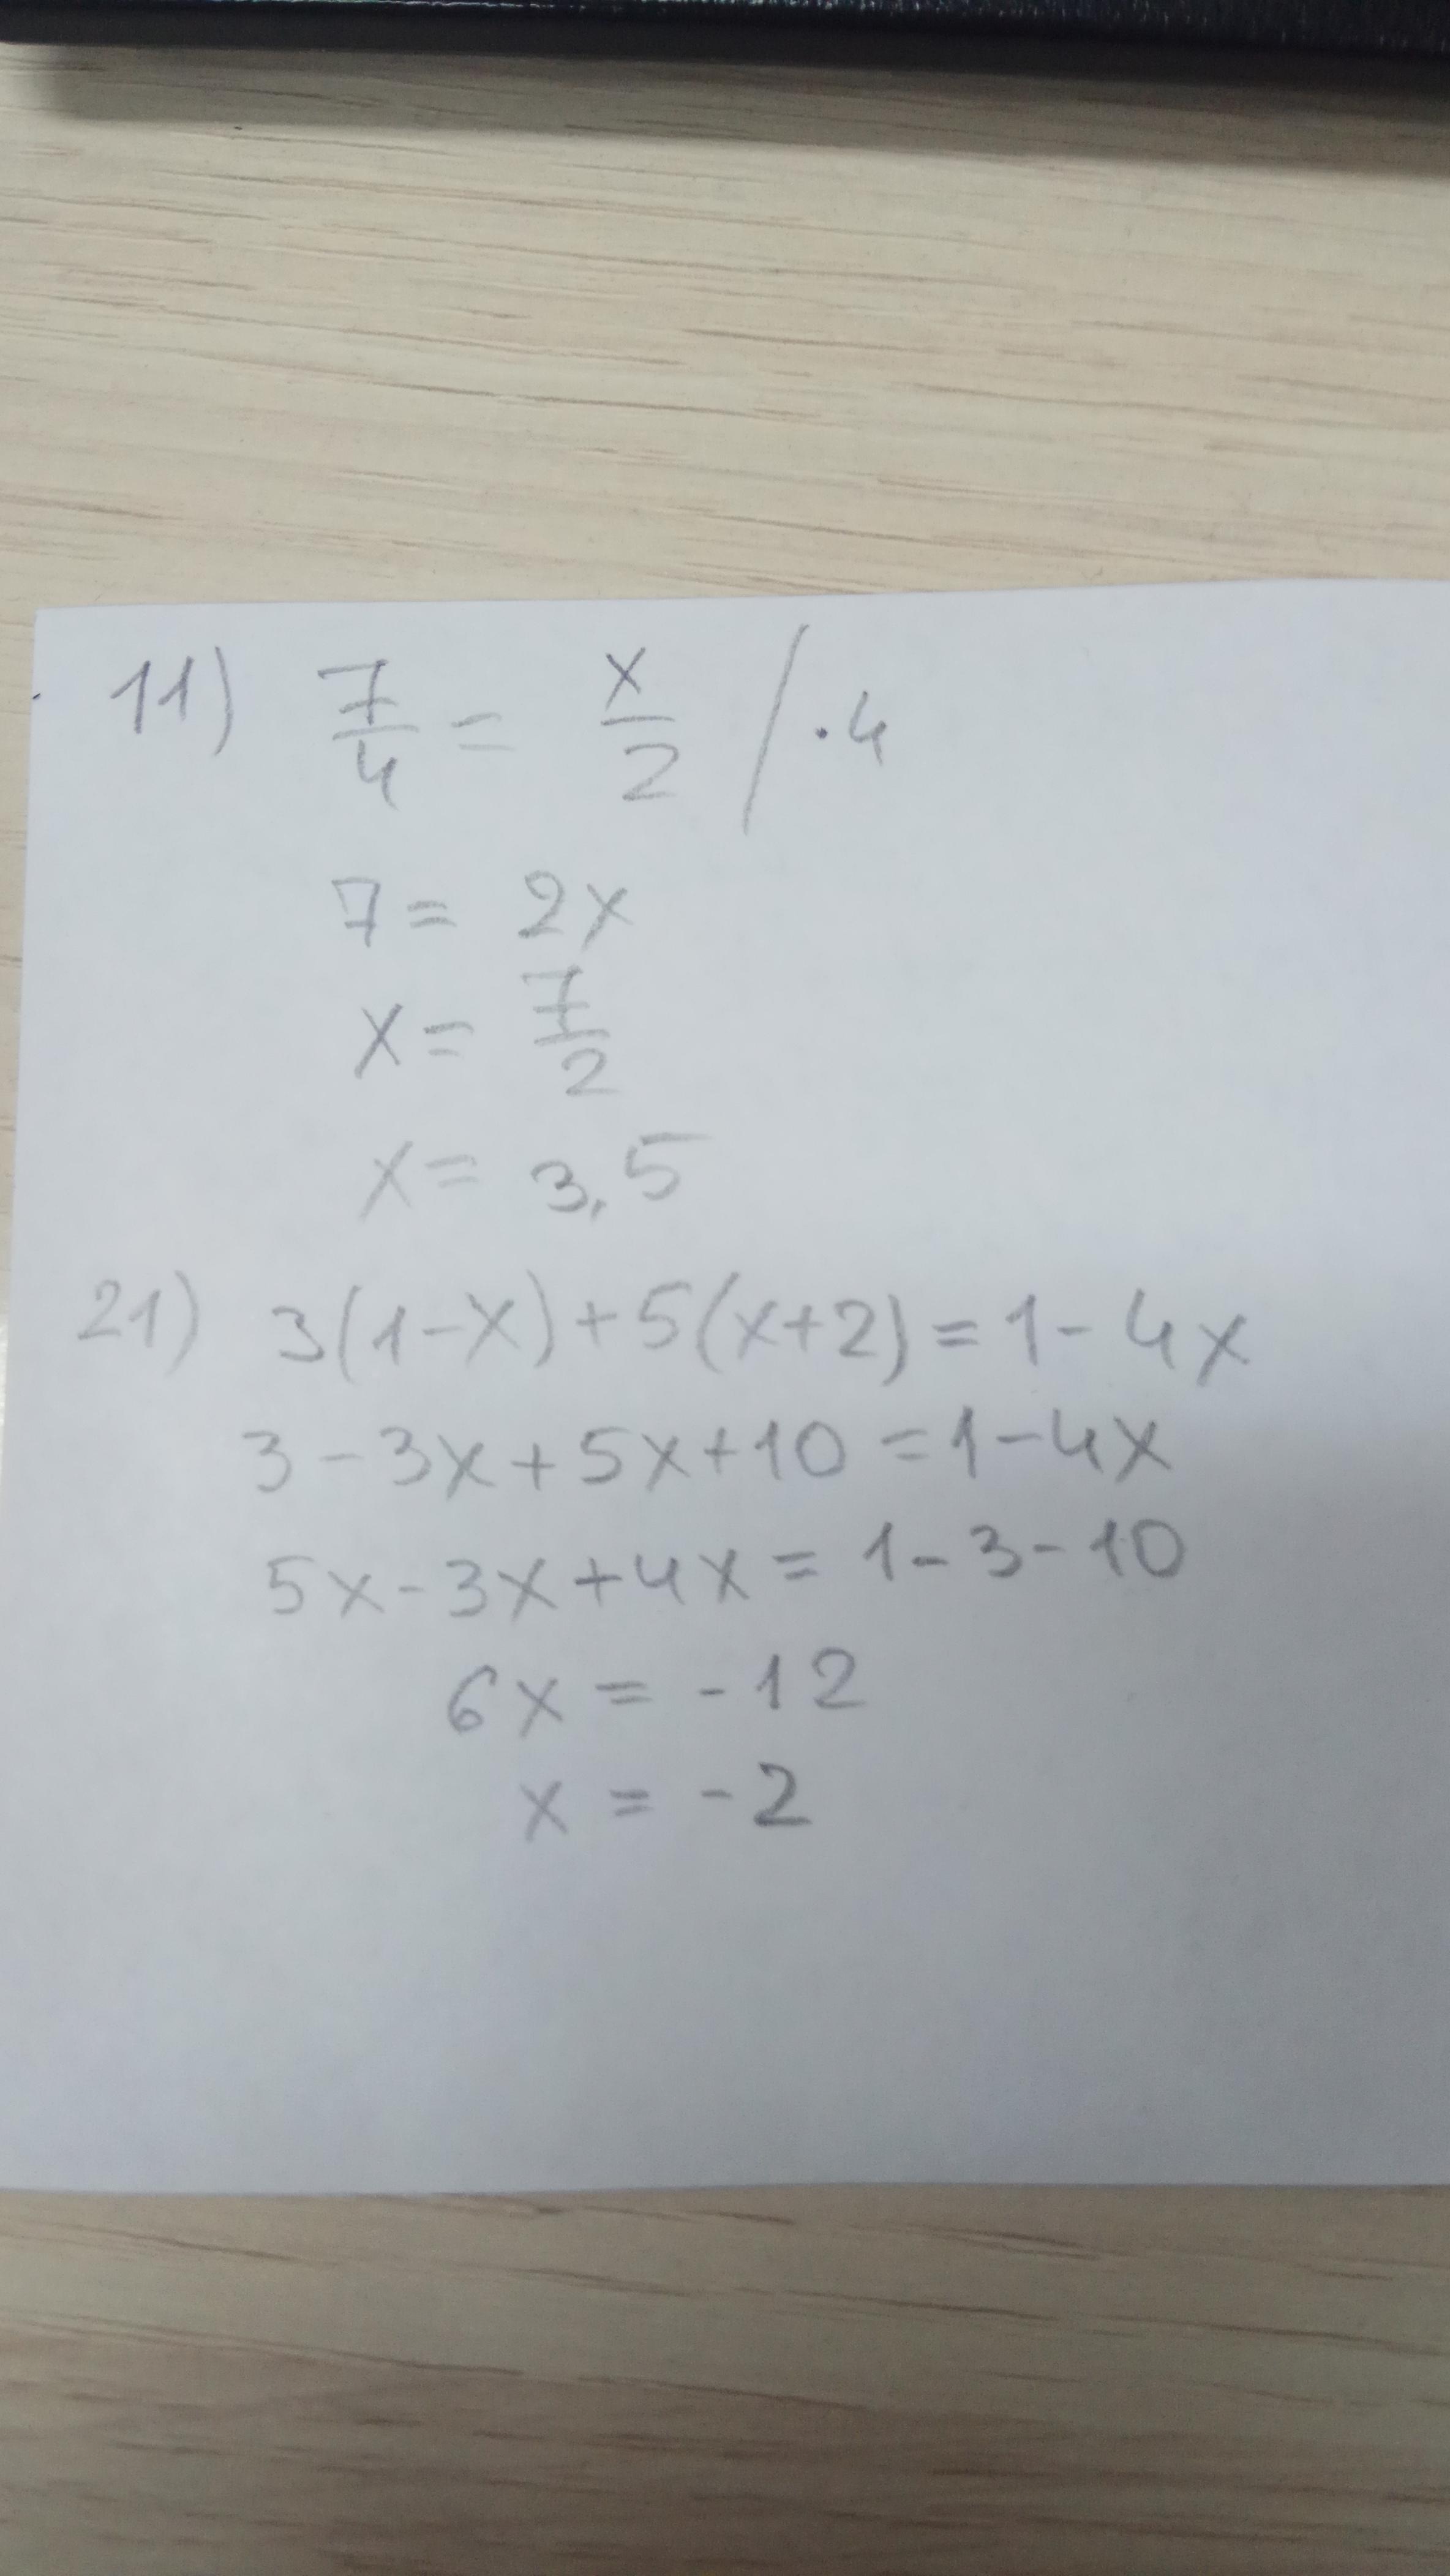 11) 7/4 = x/2 / · 4
7 = 2x
x = 7/2
x = 3,5
21) 3(1-x)+5(x+2)=1-4x
3-3x+5x+10=1-4x
5x-3x+4x=1-3-10
6x=-12
x=-2